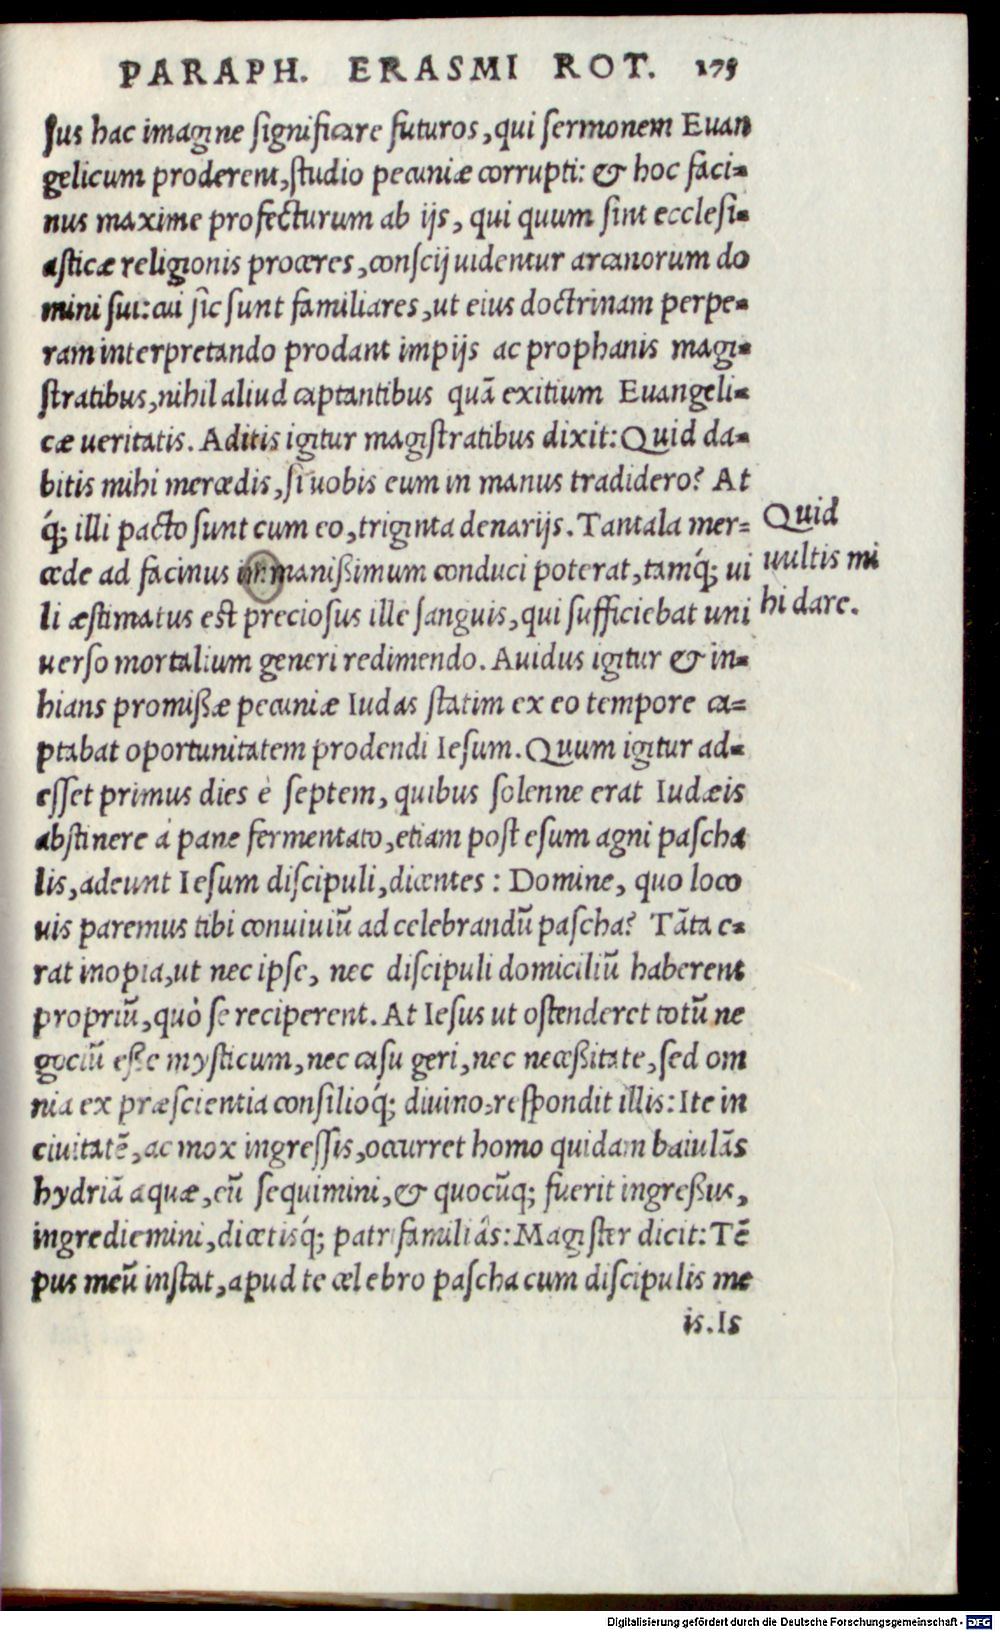 PARAPH. ERASMI ROT. 175
ſus hac imagine ſignificare futuros, qui ſermonem Euan
gelicum proderent, ſtudio pecuniæ corrupti: & hoc faci-
nus maxime profecturum ab ijs, qui quum ſint eccleſi-
aſticæ religionis proceres, conſcij uidentur arcanorum do
mini ſui: cui ſic ſunt familiares, ut eius doctrinam perpe-
ram interpretando prodant impijs ac prophanis magi-
ſtratibus, nihil aliud captantibus quã exitium Euangeli-
cæ ueritatis. Aditis igitur magiſtratibus dixit: Quid da-
bitis mihi mercedis, ſi uobis eum in manus tradidero? At
q́; illi pacto ſunt cum eo, triginta denarijs. Tantala mer-
cede ad facinus immanißimum conduci poterat, tamq́; ui
li æſtimatus eſt precioſus ille ſanguis, qui ſufficiebat uni
uerſo mortalium generi redimendo. Auidus igitur & in-
hians promißæ pecuniæ Iudas ſtatim ex eo tempore ca-
ptabat oportunitatem prodendi Ieſum. Quum igitur ad-
eſſet primus dies è ſeptem, quibus ſolenne erat Iudæis
abſtinere à pane fermentato, etiam poſt eſum agni paſcha
lis, adeunt Ieſum diſcipuli, dicentes: Domine, quo loco
uis paremus tibi conuiuiũ ad celebrandũ paſcha? Tãta e-
rat inopia, ut nec ipſe, nec diſcipuli domiciliũ haberent
propriũ, quò ſe reciperent. At Ieſus ut oſtenderet totũ ne
gociũ eße myſticum, nec caſu geri, nec neceßitate, ſed om
nia ex præſcientia conſilioq́; diuino, reſpondit illis: Ite in
ciuitatẽ, ac mox ingreſſis, occurret homo quidam baiulãs
hydriã aquæ, eũ ſequimini, & quocũq; fuerit ingreßus,
ingrediemini, dicetisq́; patrifamiliâs: Magiſter dicit: Tẽ
pus meũ inſtat, apud te celebro paſcha cum diſcipulis me
is. Is
Quid
uultis mi
hi dare.
Digitalisierung gefördert durch die Deutsche Forschungsgemeinschaft - DFG